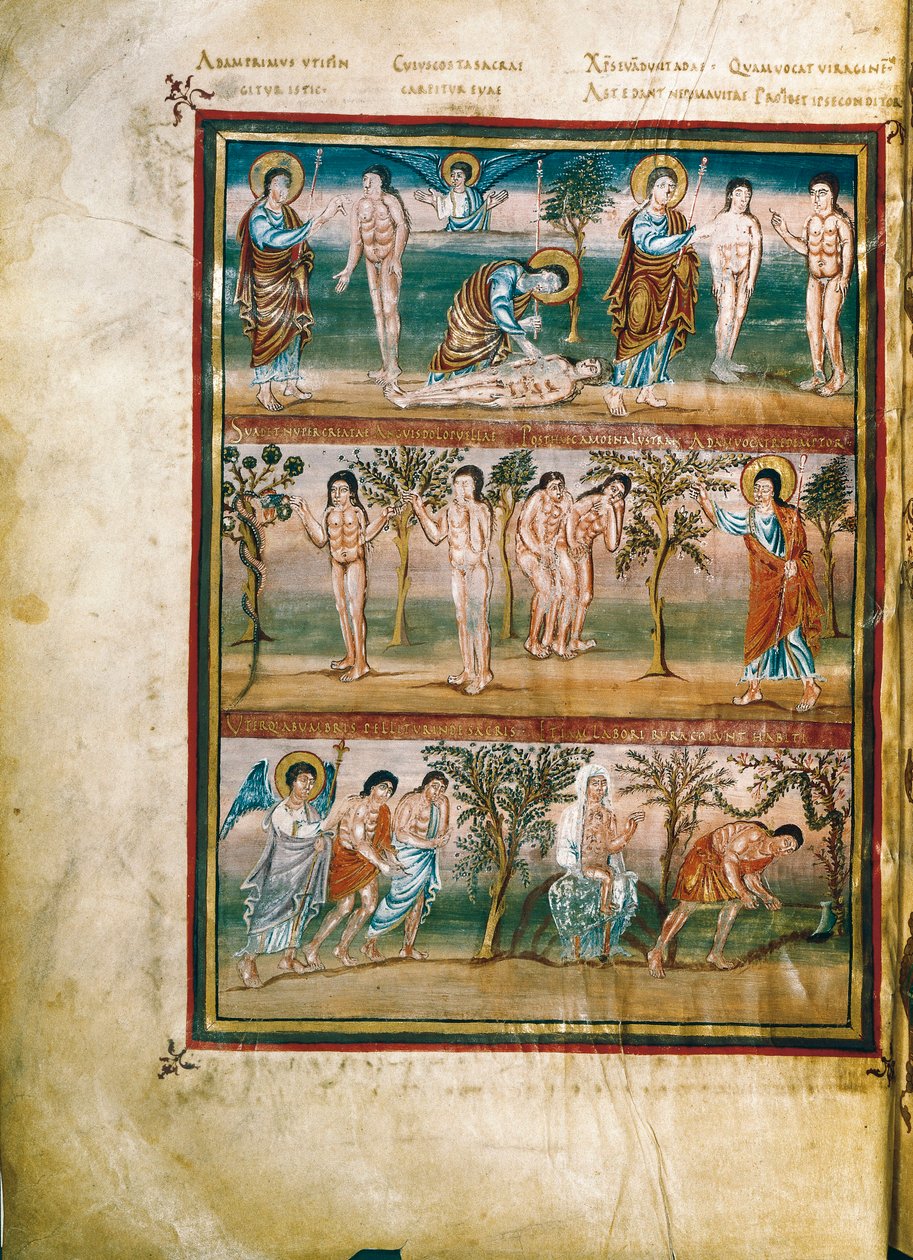 ADAM PRIMUS UTI FIN
GITUR ISTIC·
CUIUS COSTA SACRAE
CARPITUR EVAE
XP̄S EVĀ DUCIT ADAE · QUAM VOCAT VIRAGINĒ
AST EDANT NE POMA VITAE PROHIBET IPSE CONDITOR
SUADET NUPER CREATAE ANGUIS DOLO PUELLAE POST HAEC AMOENA LUSTRANS ADAM VOCAT REDEMPTOR
UTERQ· AB UMBRIS PELLITUR INDE SACRIS ET IAM LABORI RURA COLUNT HABITI